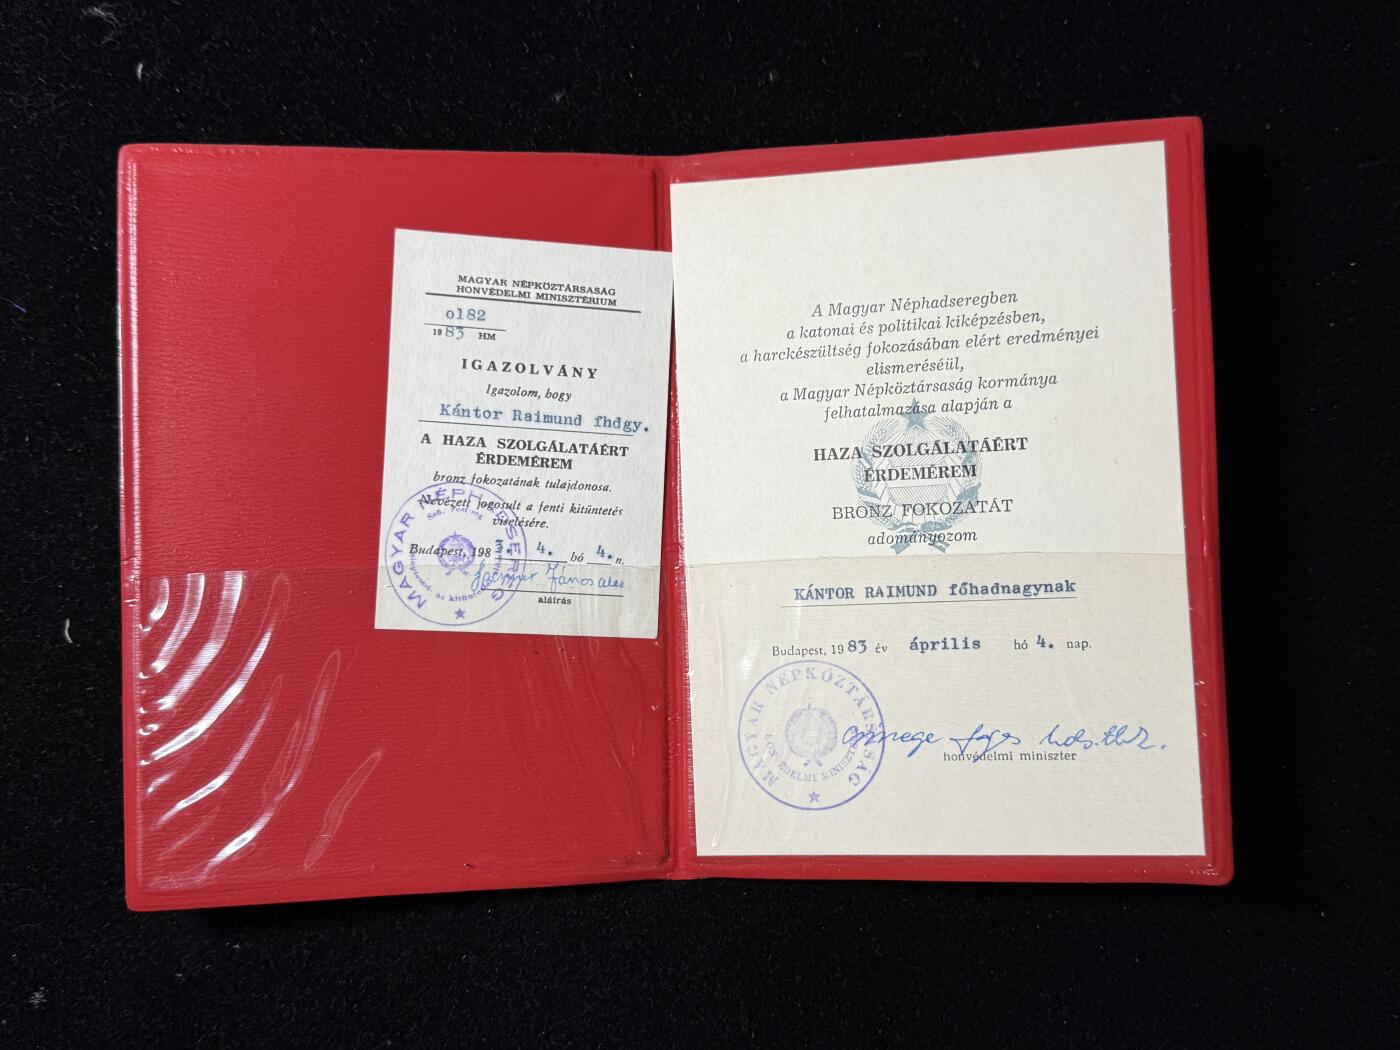 MAGYAR NÉPKÖZTÁRSASÁG
HONVÉDELMI MINISZTÉRIUM
ol82
1983 HM
IGAZOLVÁNY
Igazolom, hogy
Kántor Raimund fhdgy.
A HAZA SZOLGÁLATÁÉRT
ÉRDEMÉREM
bronz fokozatának tulajdonosa.
Nevezett jogosult a fenti kitüntetés
viselésére.
Budapest, 1983. 4. hó 4. n.
János
aláírás
MAGYAR NÉPHADSEREG
A Magyar Néphadseregben
a katonai és politikai kiképzésben,
a harckészültség fokozásában elért eredményei
elismeréséül,
a Magyar Népköztársaság kormánya
felhatalmazása alapján a
HAZA SZOLGÁLATÁÉRT
ÉRDEMÉREM
BRONZ FOKOZATÁT
adományozom
KÁNTOR RAIMUND főhadnagynak
Budapest, 1983 év április hó 4. nap.
honvédelmi miniszter
MAGYAR NÉPKÖZTÁRSASÁG
HONVÉDELMI MINISZTER